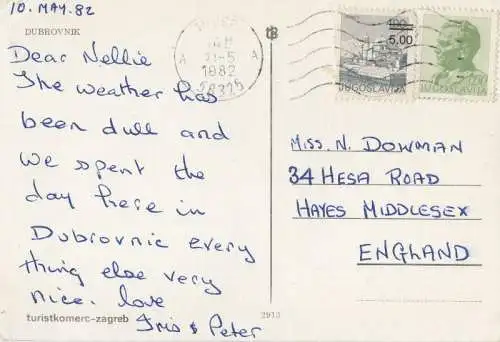 10. MAY. 82
DUBROVNIK
Dear Nellie
The weather has
been dull and
we spent the
day here in
Dubrovnic every
thing else very
nice. love
Iris & Peter
turistkomerc-zagreb
2913
1982
58325
A
A
5.00
JUGOSLAVIJA
JUGOSLAVIJA
MISS. N. DOWMAN
34 HESA ROAD
HAYES MIDDLESEX
ENGLAND